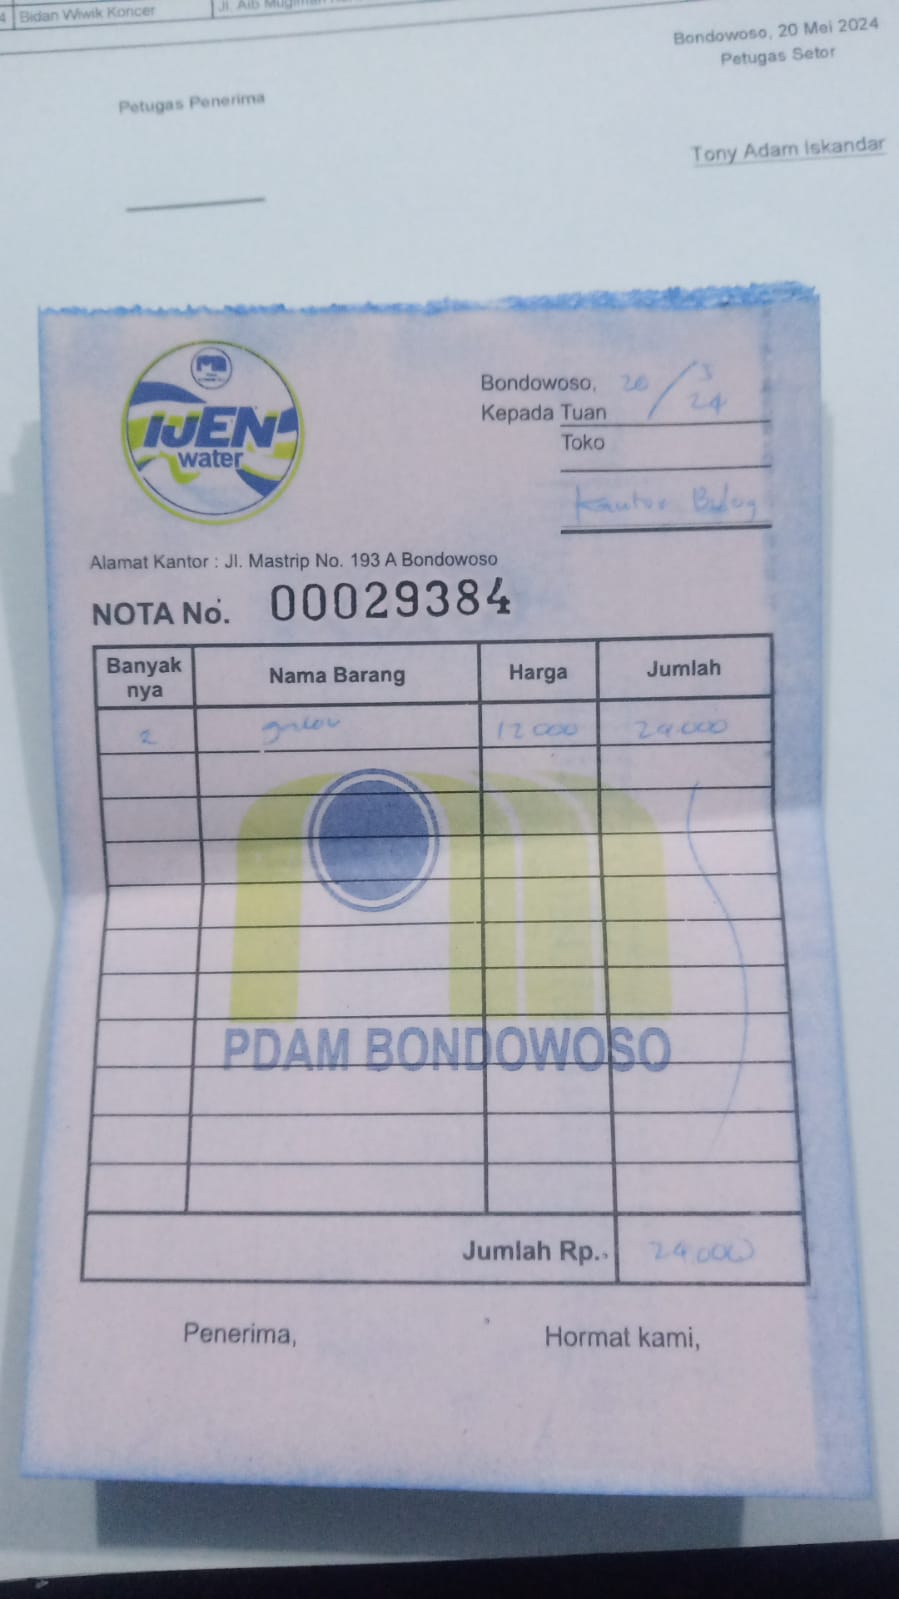 4 Bidan Wiwik Koncer Jl. Aib Mugiman
Bondowoso, 20 Mei 2024
Petugas Setor
Petugas Penerima
Tony Adam Iskandar
IJEN
water
Bondowoso, 20/5
24
Kepada Tuan
Toko
Kantor Bulog
Alamat Kantor : Jl. Mastrip No. 193 A Bondowoso
NOTA No. 00029384
Banyak nya Nama Barang Harga Jumlah
2 galon 12 000 24.000
PDAM BONDOWOSO
Jumlah Rp. 24.000
Penerima, Hormat kami,